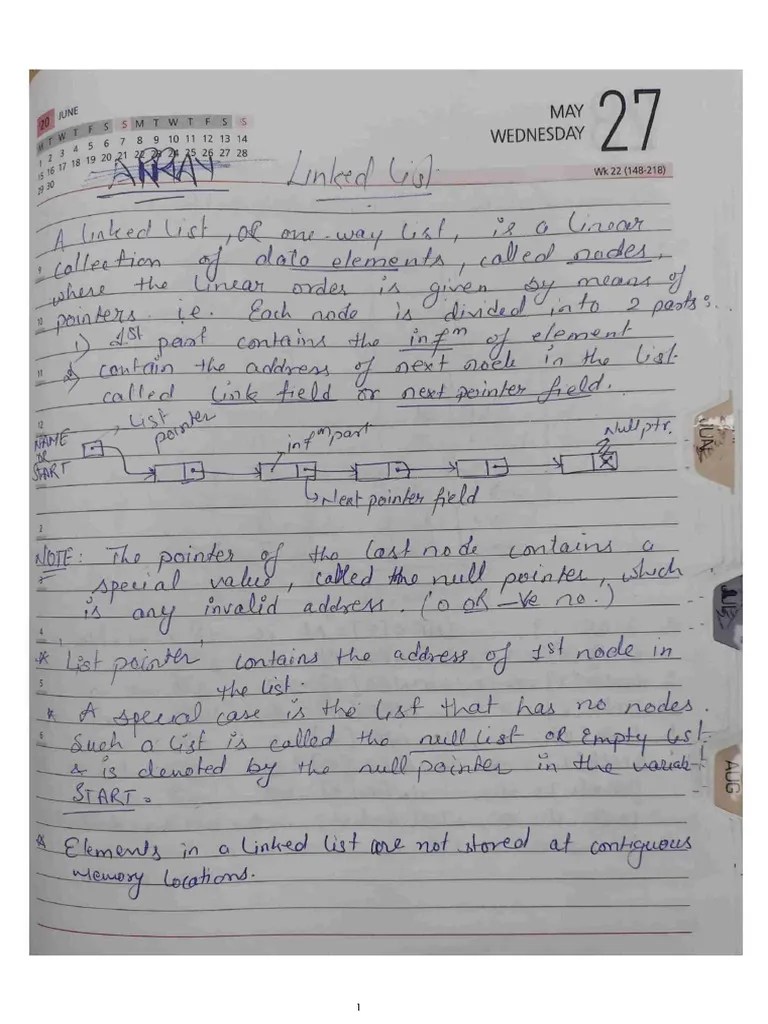 20 JUNE
M T W T F S S M T W T F S S
1 2 3 4 5 6 7 8 9 10 11 12 13 14
15 16 17 18 19 20 21 22 23 24 25 26 27 28
29 30
MAY
WEDNESDAY
27
Wk 22 (148-218)
ARRAY
Linked List
A linked list, OR one-way list, is a linear
collection of data elements, called nodes,
where the linear order is given by means of
pointers. i.e. Each node is divided into 2 parts:
1) 1st part contains the infm of element
2) contain the address of next node in the list
called link field or next pointer field.
NAME OR START
List pointer
infm part
Null ptr.
Next pointer field
NOTE: The pointer of the last node contains a
special value, called the null pointer, which
is any invalid address. (0 OR -ve no.)
* List pointer contains the address of 1st node in
the list.
* A special case is the list that has no nodes.
Such a list is called the null list OR Empty list
& is denoted by the null pointer in the variabl
START.
* Elements in a linked list are not stored at contiguous
memory locations.
JUNE
AUG
1